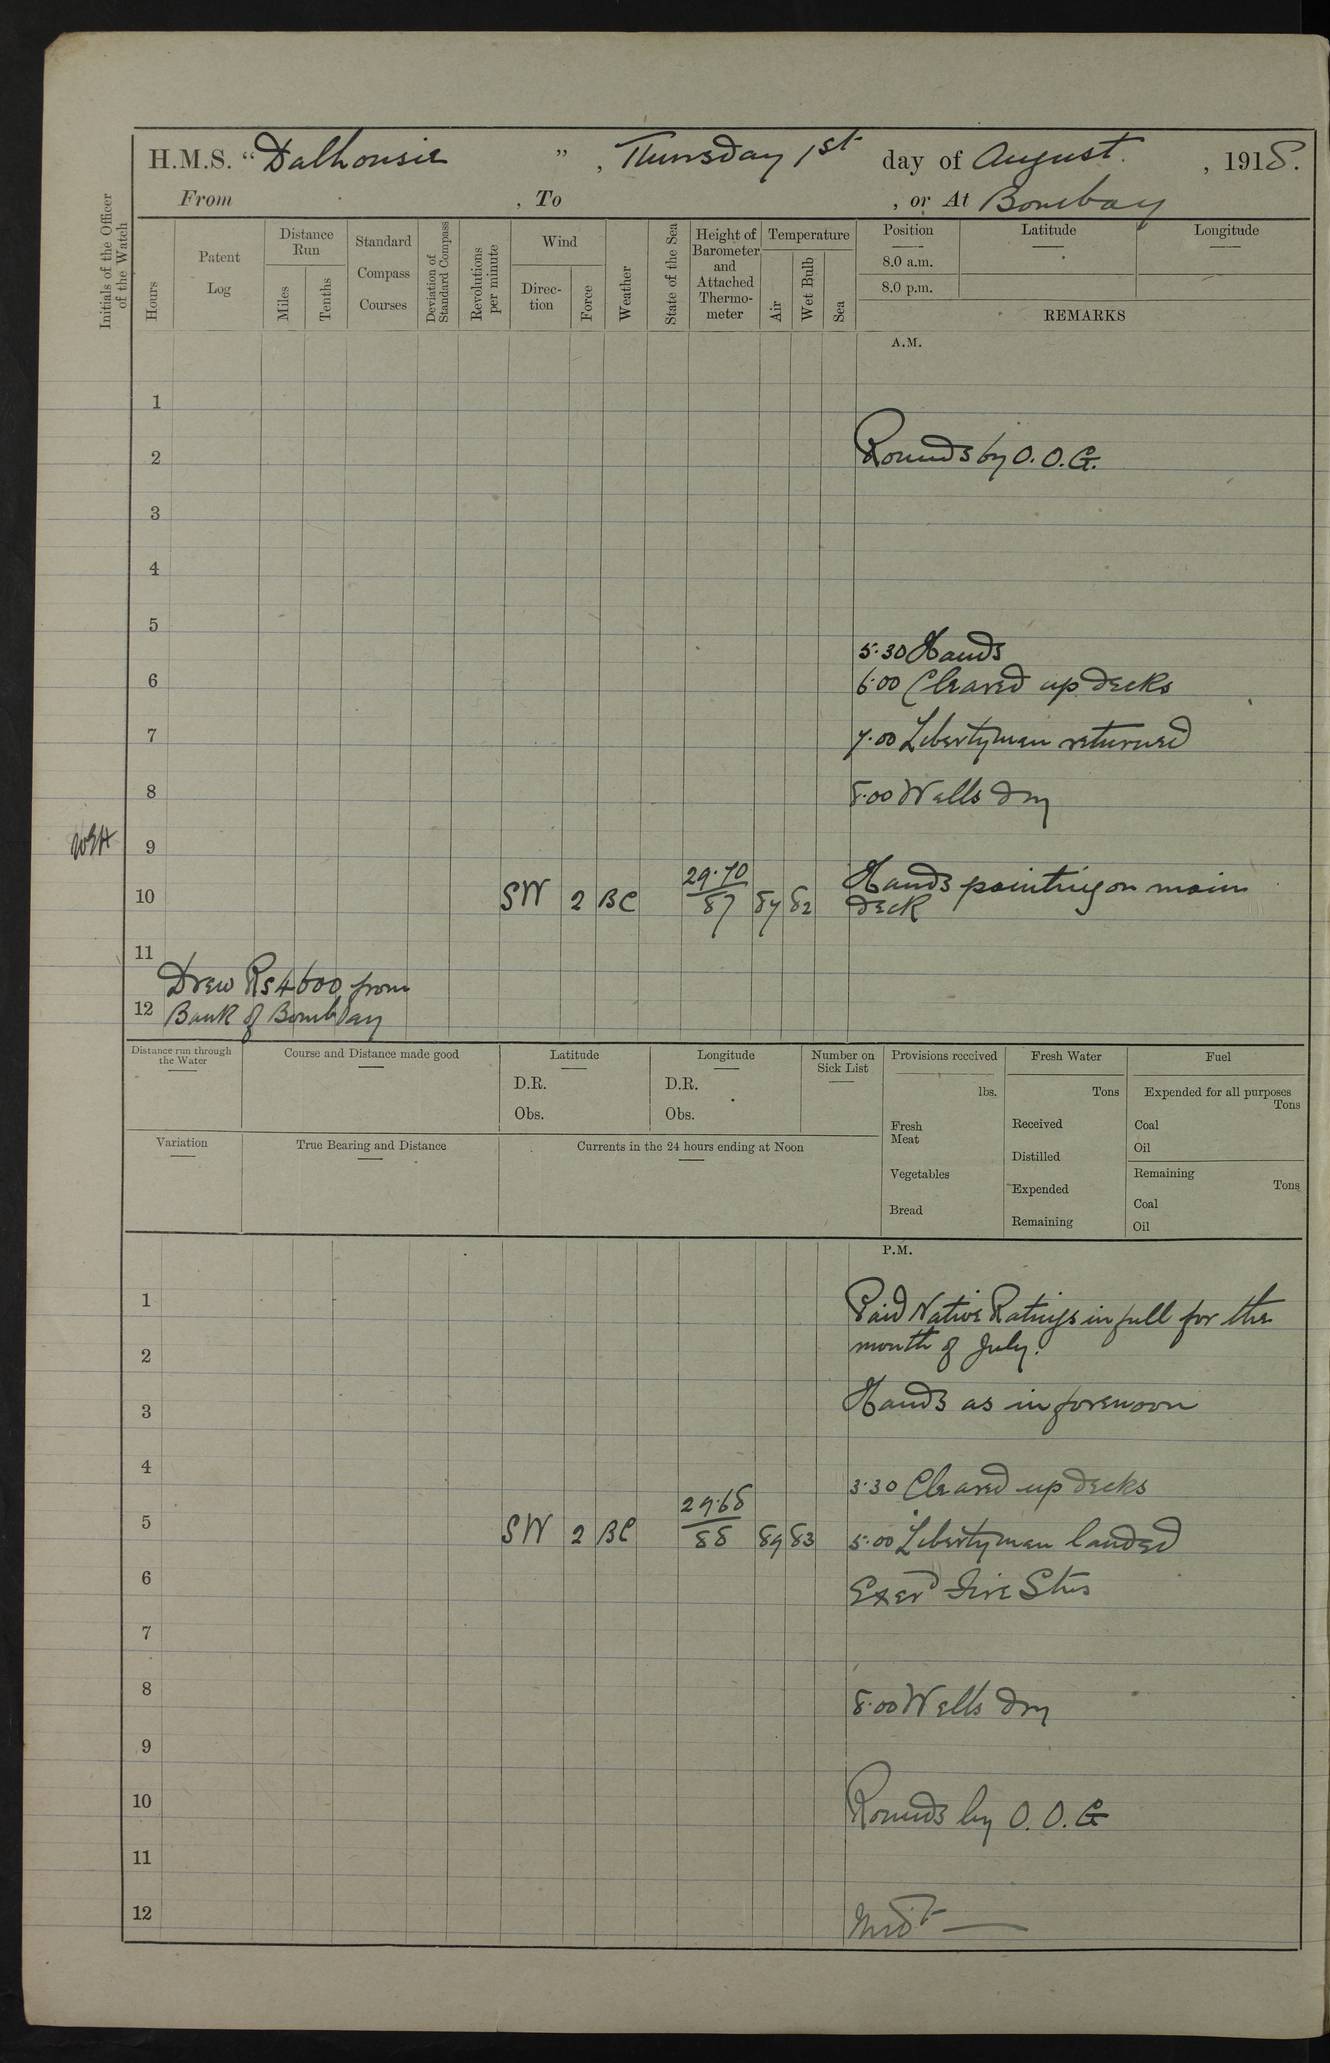 H.M.S. “Dalhousie ” , Thursday 1st day of August , 1918.
From , To , or At Bombay
Initials of the Officer of the Watch
Hours
Patent Log
Distance Run
Miles
Tenths
Standard Compass Courses
Deviation of Standard Compass
Revolutions per minute
Wind
Direction
Force
Weather
State of the Sea
Height of Barometer and Attached Thermometer
Temperature
Air
Wet Bulb
Sea
Position
8.0 a.m.
8.0 p.m.
Latitude
Longitude
REMARKS
A.M.
1
2 Rounds by O.O.G.
3
4
5
5.30 Hands
6 6.00 Cleared up decks
7 7.00 Libertymen returned
8 8.00 Wells dry
9
29.70 Hands painting on main
10 SW 2 BC 87 87 82 deck
11
Drew Rs 4600 from
12 Bank of Bombay
Distance run through the Water
Course and Distance made good
Latitude
D.R.
Obs.
Longitude
D.R.
Obs.
Number on Sick List
Provisions received
lbs.
Fresh Meat
Vegetables
Bread
Fresh Water
Tons
Received
Distilled
Expended
Remaining
Fuel
Expended for all purposes
Tons
Coal
Oil
Remaining
Tons
Coal
Oil
Variation
True Bearing and Distance
Currents in the 24 hours ending at Noon
P.M.
1 Paid Native Ratings in full for the
2 month of July.
3 Hands as in forenoon
4
3.30 Cleared up decks
29.68
5 SW 2 BC 88 89 83 5.00 Libertymen landed
6 Exerd Fire Stns
7
8 8.00 Wells dry
9
10 Rounds by O.O.G
11
12 Midt